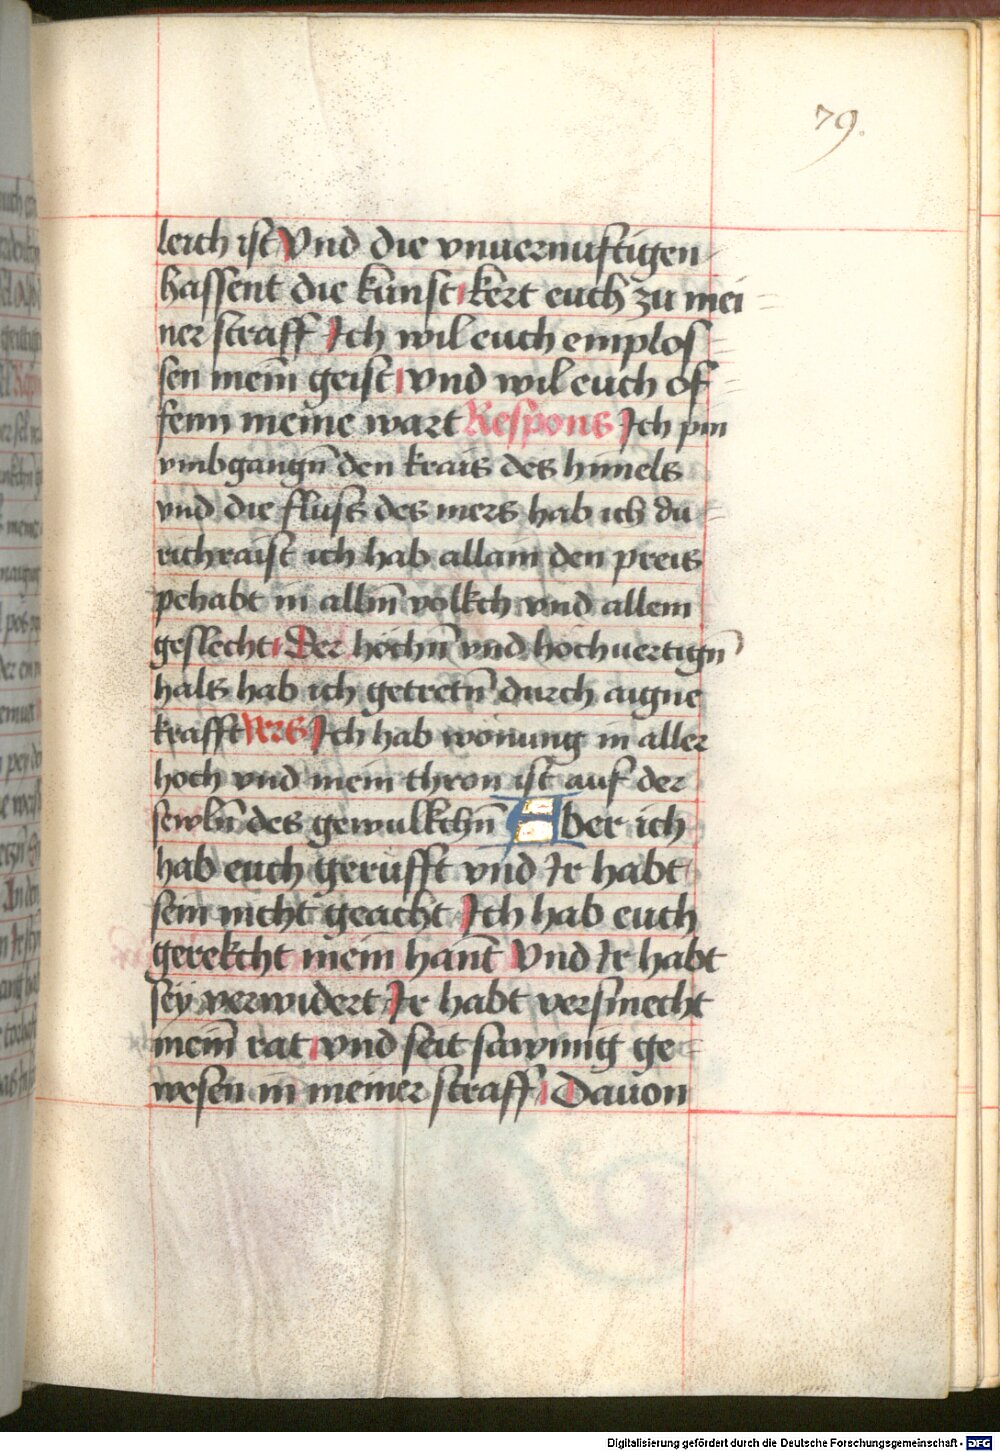 79.
leich ist Vnd die vnuernuftigen
hassent die kunst kert euch zu mei
ner straff Ich wil euch emplos
sen mein̄ geist vnd wil euch of
fenn meine wart Respons Ich pin
vmbgangn̄ den krais des himels
vnd die fluss des mers hab ich du
richraist ich hab allain den preis
pehabt in alln̄ volkch vnd allem
geslecht Der hochn̄ vnd hochuertign̄
hals hab ich getretn̄ durch aigne
krafft Vers Ich hab wonung in aller
hoch vnd mein thron ist auf der
sewln̄ des gewulkchn̄ Aber ich
hab euch gerufft vnd Ir habt
sein nicht geacht Ich hab euch
gerekcht mein hant Vnd Ir habt
sey verwidert Ir habt versmecht
mein̄ rat vnd seit sawmig ge
wesen in meiner straff Dauon
Digitalisierung gefördert durch die Deutsche Forschungsgemeinschaft - DFG